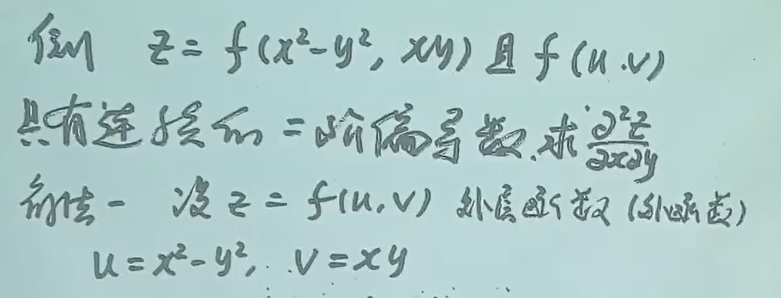 例 z = f(x²-y², xy) 且 f(u.v)
具有连续的二阶偏导数.求 ∂²z/∂x∂y
解法一 设 z = f(u,v) 外层函数(外函数)
u = x²-y², v = xy